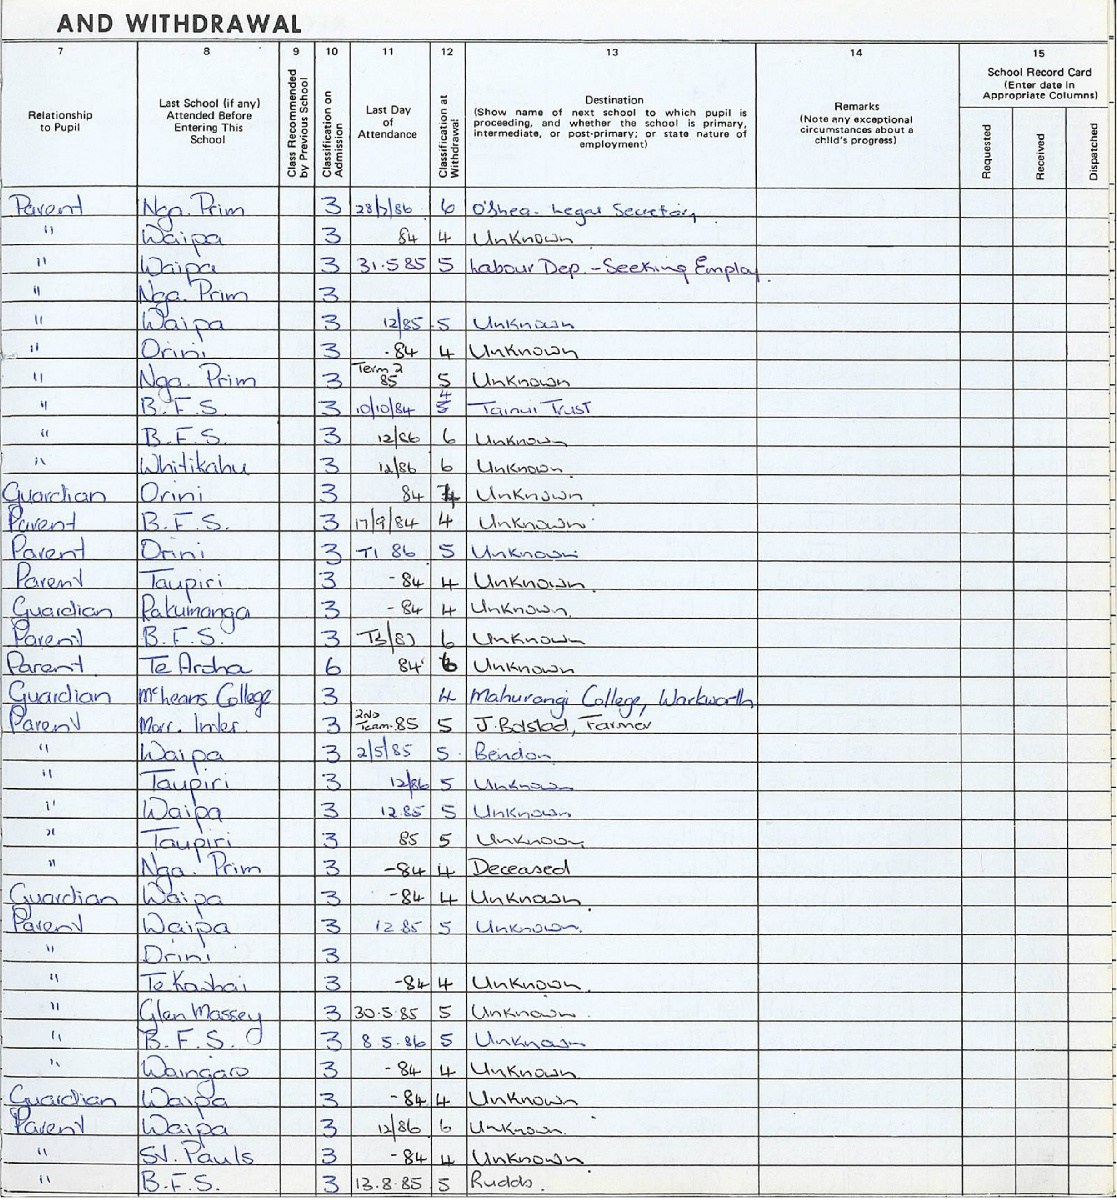 AND WITHDRAWAL
7 8 9 10 11 12 13 14 15
Relationship to Pupil
Last School (if any) Attended Before Entering This School
Class Recommended by Previous School
Classification on Admission
Last Day of Attendance
Classification at Withdrawal
Destination
(Show name of next school to which pupil is proceeding, and whether the school is primary, intermediate, or post-primary; or state nature of employment)
Remarks
(Note any exceptional circumstances about a child's progress)
School Record Card
(Enter date in Appropriate Columns)
Requested Received Dispatched
Parent Nga. Prim 3 6 O'Shea. Legal Secretary
" Waipa 3 84 4 Unknown
" Waipa 3 31.5 85 5 Labour Dep - Seeking Employ
" Nga. Prim 3
" Waipa 3 12/85 5 Unknown
" Orini 3 .84 4 Unknown
" Nga. Prim 3 Term 2 85 5 Unknown
" B.F.S. 3 10/10/84 4 5 Tainui Trust
" B.F.S. 3 6 Unknown
" Whitikahu 3 12/86 6 Unknown
Guardian Orini 3 84 4 Unknown
Parent B.F.S. 3 17/9/84 4 Unknown
Parent Orini 3 T1 86 5 Unknown
Parent Taupiri 3 -84 4 Unknown
Guardian Rakumanga 3 -84 4 Unknown
Parent B.F.S. 3 6 Unknown
Parent Te Aroha 6 84 6 Unknown
Guardian College 3 4 Mahurangi College, Warkworth
Parent Morr. Inter. 3 2nd Team 85 5 J. Bolstad, Farmer
" Waipa 3 2/5/85 5 Bendon
" Taupiri 3 12/86 5 Unknown
" Waipa 3 12.85 5 Unknown
" Taupiri 3 85 5 Unknown
" Nga. Prim 3 -84 4 Deceased
Guardian Waipa 3 -84 4 Unknown
Parent Waipa 3 12 85 5 Unknown.
" Orini 3
" Te Kowhai 3 -84 4 Unknown.
" Glen Massey 3 30.5.85 5 Unknown.
" B.F.S. 3 8 5.86 5 Unknown
" Waingaro 3 -84 4 Unknown
Guardian Waipa 3 -84 4 Unknown
Parent Waipa 3 12/86 6 Unknown.
" St. Pauls 3 -84 4 Unknown
" B.F.S. 3 13.8.85 5 Rudds.